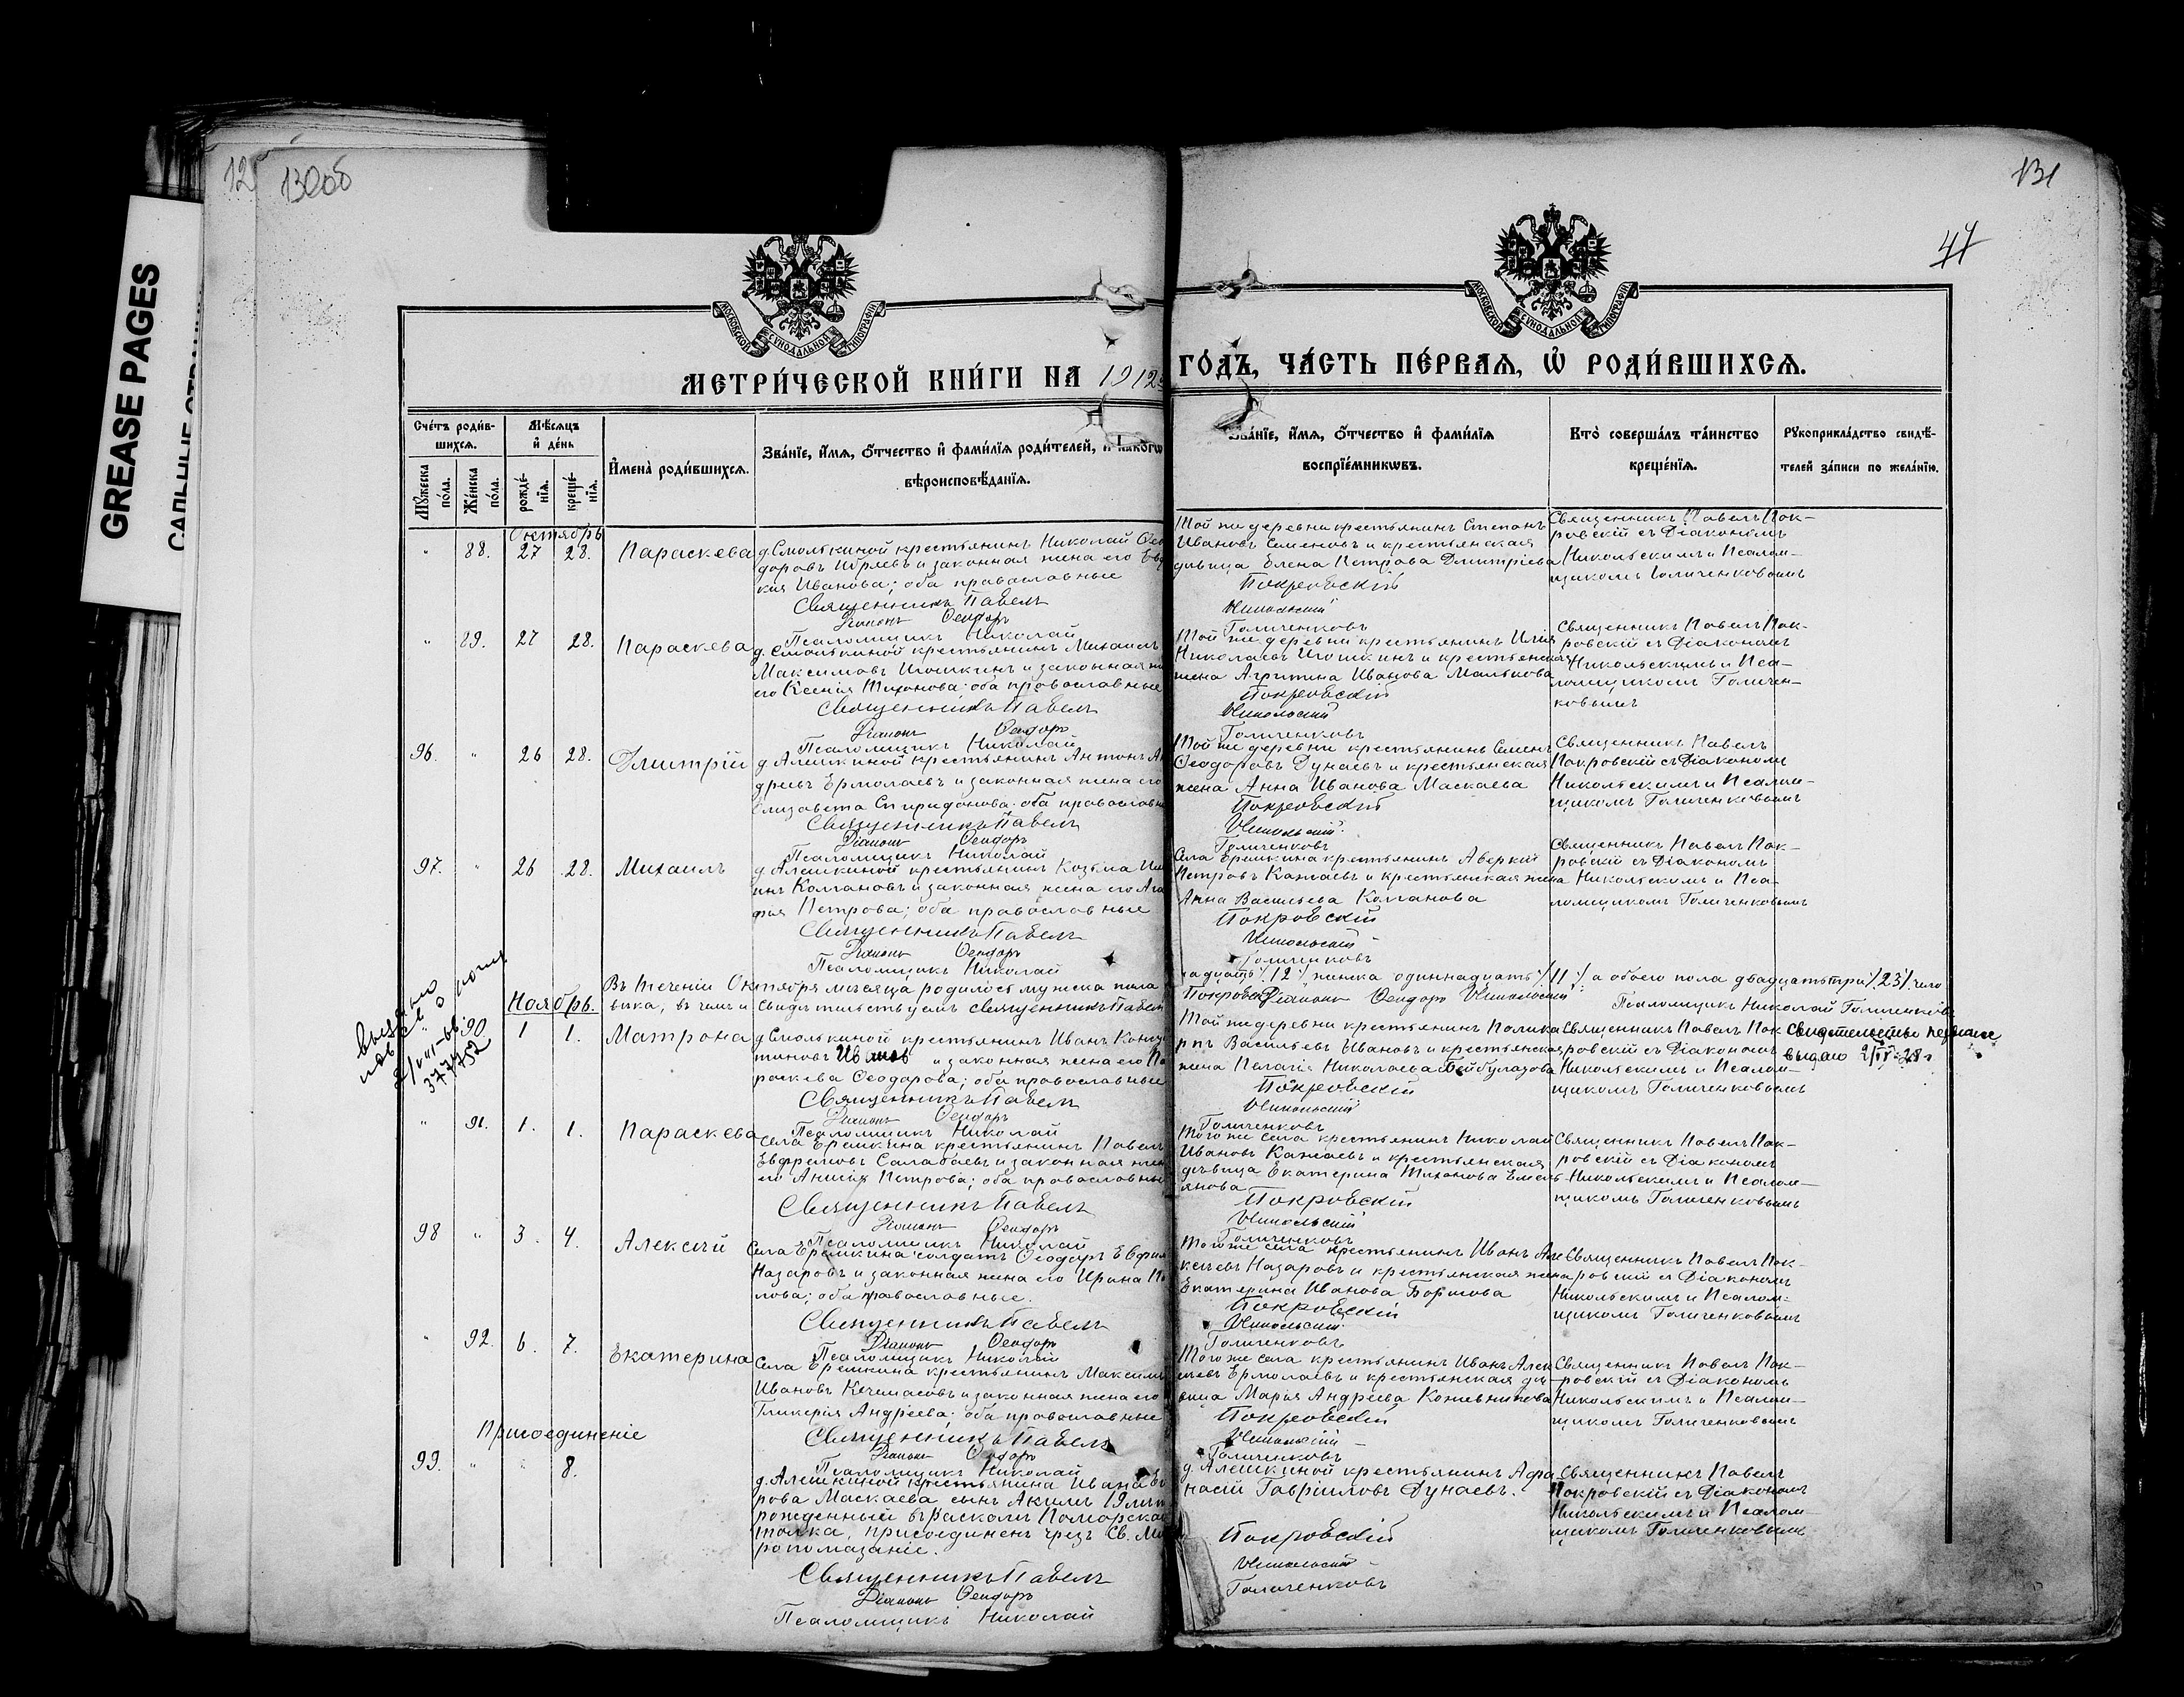 GREASE PAGES
12
130об
131
47
МОСКОВСКОЙ СѴНОДАЛЬНОЙ ТИПОГРАФІИ
МОСКОВСКОЙ СѴНОДАЛЬНОЙ ТИПОГРАФІИ
МЕТРИ́ЧЕСКОЙ КНИ́ГИ НА 1912
ГО́ДЪ, ЧА́СТЬ ПЕ́РВАЯ, Ѡ҆ РОДИ́ВШИХСЯ.
Сче́тъ роди́вшихся.
Мѣ́сяцъ и҆ де́нь
Мꙋ́жеска по́ла.
Же́нска по́ла.
рожде́нїѧ.
креще́нїѧ.
И҆мена̀ роди́вшихся.
Зва́нїе, и҆́мѧ, ѻ҆́тчество и҆ фамилїѧ роди́телей, и
вѣроисповѣ́данїѧ.
Зва́нїе, и҆́мѧ, ѻ҆́тчество и҆ фами́лїѧ
воспрїе́мникѡвъ.
Кто̀ соверша́лъ та́инство
креще́нїѧ.
Рꙋкоприкла́дство свидѣ́-
телей за́писи по жела́нїю.
Октябрь
" 88. 27 28. Параскева
д. Смолькиной крестьянинъ Николай Ѳео
доровъ и законная жена его Евд
кія Иванова; оба православные
Священникъ Павелъ
Діаконъ Ѳеодоръ
Псаломщикъ Николай
Той же деревни крестьянинъ Степанъ
Ивановъ Семеновъ и крестьянская
дѣвица Елена Петрова Дмитріева
Покровскій
Никольскій
Голиченковъ
Священникъ Павелъ Пок-
ровскій съ Діакономъ
Никольскимъ и Псалом-
щикомъ Голиченковымъ
" 89. 27 28. Параскева
д. Смолькиной крестьянинъ Михаилъ
Максимовъ Игошкинъ и законная же
его Ксенія Тихонова; оба православные
Священникъ Павелъ
Діаконъ Ѳеодоръ
Псаломщикъ Николай
Той же деревни крестьянинъ Илія
Николаевъ Игошкинъ и крестьянская
жена Агрипина Иванова Малькова
Покровскій
Никольскій
Голиченковъ
Священникъ Павелъ Пок-
ровскій съ Діакономъ
Никольскимъ и Пса-
ломщикомъ Голичен-
ковымъ
96. " 26 28. Димитрій
д. Алешкиной крестьянинъ Антонъ Ан
дреевъ Ермолаевъ и законная жена его
Елизавета Спиридонова; оба православн
Священникъ Павелъ
Діаконъ Ѳеодоръ
Псаломщикъ Николай
Той же деревни крестьянинъ Семенъ
Ѳеодоровъ Дунаевъ и крестьянская
жена Анна Иванова Маскаева
Покровскій
Никольскій
Голиченковъ
Священникъ Павелъ
Покровскій съ Діакономъ
Никольскимъ и Псалом-
щикомъ Голиченковымъ
97. " 26 28. Михаилъ
д. Алешкиной крестьянинъ Козьма Иль
инъ Колгановъ и законная жена его Ага
фія Петрова; оба православные
Священникъ Павелъ
Діаконъ Ѳеодоръ
Псаломщикъ Николай
Села Еремкина крестьянинъ Аверкій
Петровъ Кажаевъ и крестьянская жена
Анна Васильева Колганова
Покровскій
Никольскій
Голиченковъ
Священникъ Павелъ Пок-
ровскій съ Діакономъ
Никольскимъ и Пса-
ломщикомъ Голиченковымъ
Въ теченіи Октября мѣсяца родилось мужска пола
надцать /12/ женска одиннадцать /11/ а обоего пола двадцать три /23/ чело
вѣка, въ чемъ и свидѣтельствуемъ Священникъ Павелъ
Покровскій Діаконъ Ѳеодоръ Никольскій
Псаломщикъ Николай Голиченковъ
Ноябрь.
выдано
377752
90 1 1. Матрона
д. Смолькиной крестьянинъ Иванъ Конст
тиновъ Ивановъ и законная жена его Па
раскева Ѳеодорова; оба православные
Священникъ Павелъ
Діаконъ Ѳеодоръ
Псаломщикъ Николай
Той же деревни крестьянинъ Полика
рпъ Васильевъ Ивановъ и крестьянская
жена Пелагія Николаева Бейбулатова
Покровскій
Никольскій
Голиченковъ
Священникъ Павелъ Пок
ровскій съ Діакономъ
Никольскимъ и Псалом-
щикомъ Голиченковымъ
Свидетельство
выдано
" 91. 1. 1. Параскева
Села Еремкина крестьянинъ Павелъ
Евфимовъ Салабаевъ и законная жен
его Анисія Петрова; оба православные
Священникъ Павелъ
Діаконъ Ѳеодоръ
Псаломщикъ Николай
Того же села крестьянинъ Николай
Ивановъ Кажаевъ и крестьянская
дѣвица Екатерина Тихонова Емель
янова
Покровскій
Никольскій
Голиченковъ
Священникъ Павелъ Пок-
ровскій съ Діакономъ
Никольскимъ и Псалом-
щикомъ Голиченковымъ
98 " 3. 4. Алексѣй
Села Еремкина солдатъ Ѳеодоръ Евфим
Назаровъ и законная жена его Ирина
лова; оба православные.
Священникъ Павелъ
Діаконъ Ѳеодоръ
Псаломщикъ Николай
Того же села крестьянинъ Иванъ Але
ксѣевъ Назаровъ и крестьянская жена
Екатерина Иванова Борисова
Покровскій
Никольскій
Голиченковъ
Священникъ Павелъ Пок-
ровскій съ Діакономъ
Никольскимъ и Псалом-
щикомъ Голиченковымъ
" 92. 6. 7. Екатерина
Села Еремкина крестьянинъ Максимъ
Ивановъ Кечемасовъ и законная жена его
Гликерія Андреева; оба православные
Священникъ Павелъ
Діаконъ Ѳеодоръ
Псаломщикъ Николай
Того же села крестьянинъ Иванъ Алек
сѣевъ Ермолаевъ и крестьянская дѣ-
вица Марья Андреева Кожевникова
Покровскій
Никольскій
Голиченковъ
Священникъ Павелъ Пок-
ровскій съ Діакономъ
Никольскимъ и Псалом-
щикомъ Голиченковымъ
Присоединеніе
99. " " 8.
д. Алешкиной крестьянина Ивана
рова Маскаева сынъ Акимъ 19 лѣтъ
рожденный въ расколѣ Поморскаго
толка, присоединенъ чрезъ Св. Мѵ
ропомазаніе.
Священникъ Павелъ
Діаконъ Ѳеодоръ
Псаломщикъ Николай
д. Алешкиной крестьянинъ Аѳа
насій Гавріиловъ Дунаевъ.
Покровскій
Никольскій
Голиченковъ
Священникъ Павелъ
Покровскій съ Діакономъ
Никольскимъ и Псалом-
щикомъ Голиченковымъ